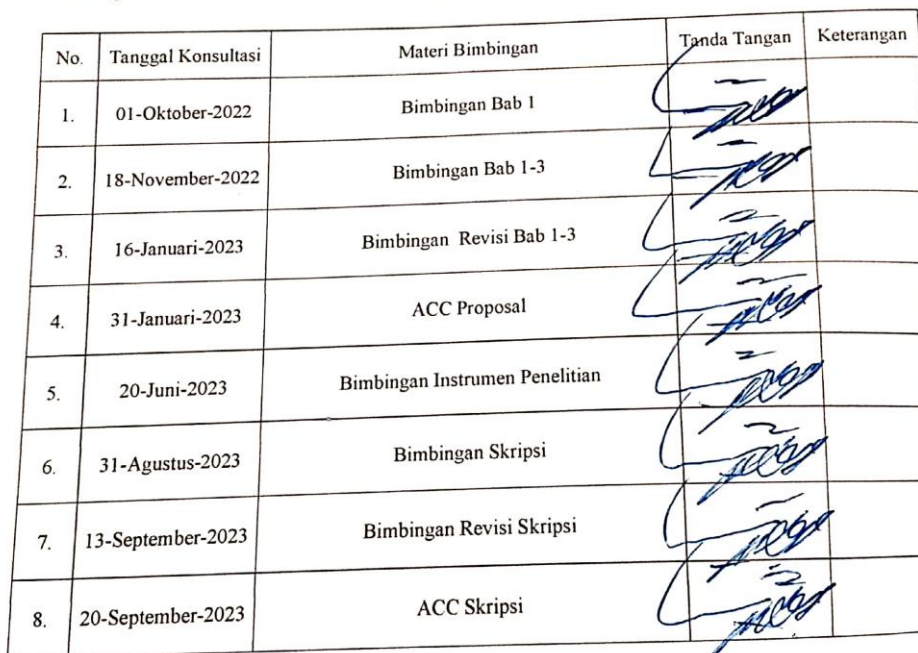 No. Tanggal Konsultasi Materi Bimbingan Tanda Tangan Keterangan
1. 01-Oktober-2022 Bimbingan Bab 1
2. 18-November-2022 Bimbingan Bab 1-3
3. 16-Januari-2023 Bimbingan Revisi Bab 1-3
4. 31-Januari-2023 ACC Proposal
5. 20-Juni-2023 Bimbingan Instrumen Penelitian
6. 31-Agustus-2023 Bimbingan Skripsi
7. 13-September-2023 Bimbingan Revisi Skripsi
8. 20-September-2023 ACC Skripsi